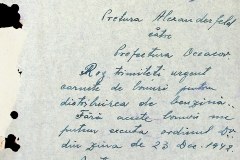 Pretura Alexanderfeld
către
Prefectura Oceacov
Rog trimiteți urgent
carnete de bonuri pentru
distribuirea de benzină..
Fără aceste bonuri nu
putem executa ordinul Dv.
din ziua de 23 Dec. 1942.